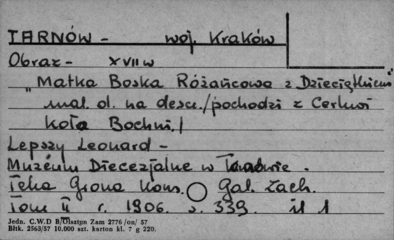 TARNÓW - woj. Kraków
Obraz - XVII w
"Matka Boska Różańcowa z Dzieciątkiem"
mal. ol. na desce / pochodzi z Cerkwi
koła Bochni, /
Lepszy Leonard -
Muzeum Diecezjalne w Tarnowie.
Teka Grona Kons. Gal. Zach.
Tom II r. 1906. s. 339. il 1
Jedn. C.W.D B/Olsztyn Zam 2776/on/ 57
Błkt. 2563/57 10.000 szt. karton kl. 7 g 220.